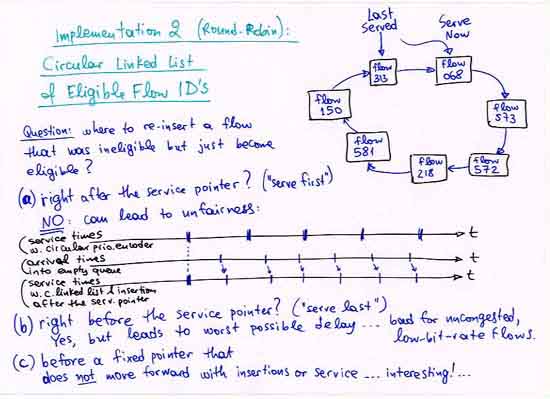 Implementation 2 (Round-Robin):
Circular Linked List
of Eligible Flow ID's
Last
Served
Serve
Now
flow
313
flow
068
flow
573
flow
572
flow
218
flow
581
flow
150
Question: where to re-insert a flow
that was ineligible but just become
eligible?
(a) right after the service pointer? ("serve first")
NO: can lead to unfairness:
service times
w. circular prio. encoder
t
arrival times
into empty queue
t
service times
w. c. linked list & insertion
after the serv. pointer
t
(b) right before the service pointer? ("serve last")
Yes, but leads to worst possible delay ... bad for uncongested,
low-bit-rate flows.
(c) before a fixed pointer that
does not move forward with insertions or service ... interesting!...